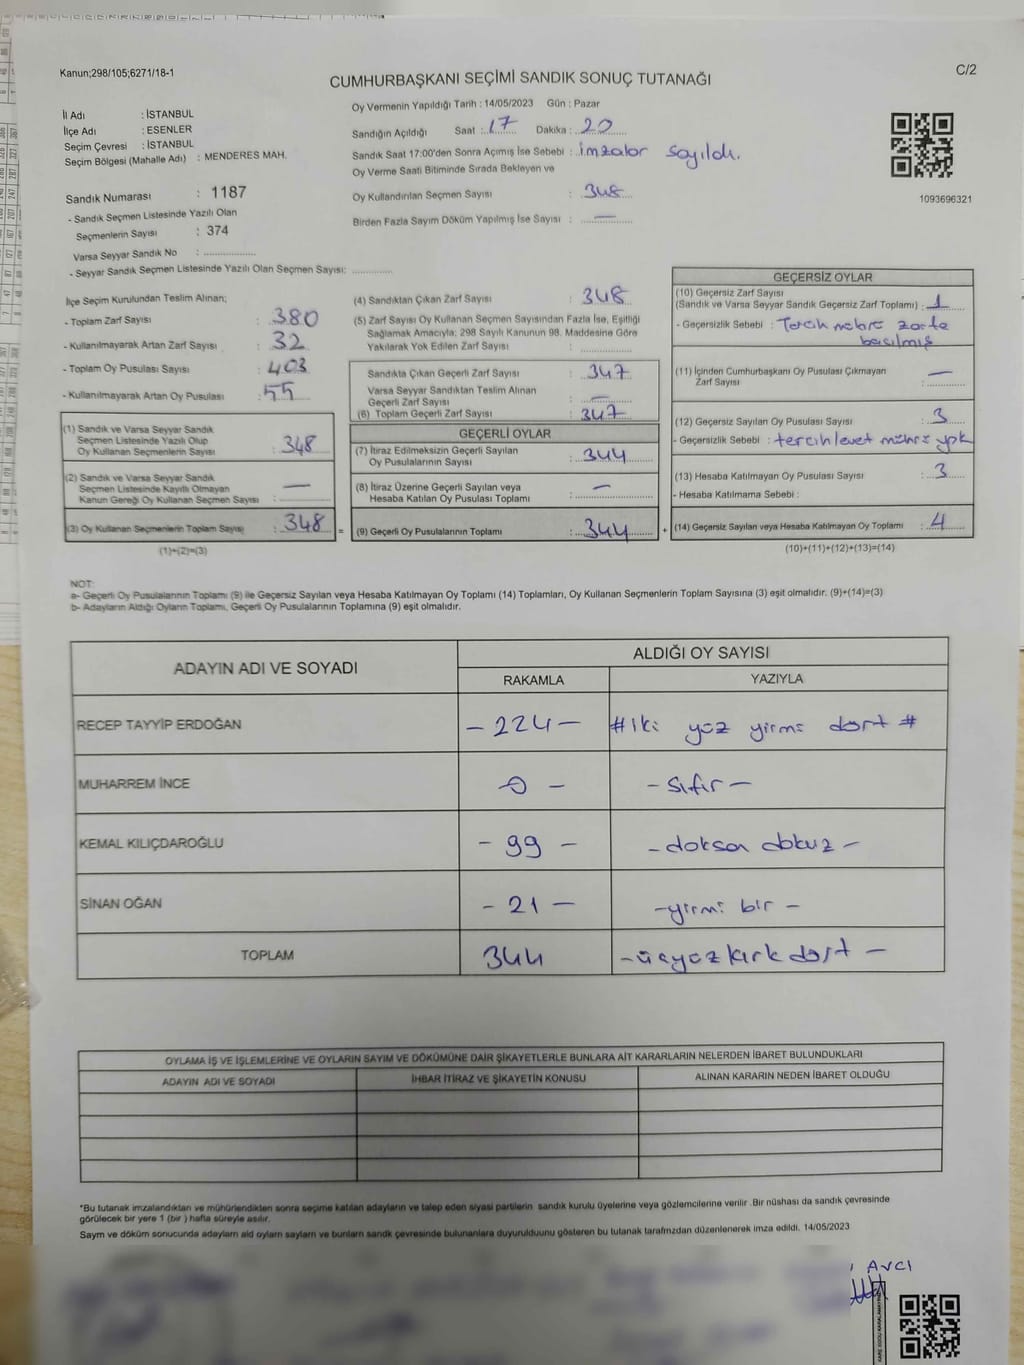 Kanun;298/105;6271/18-1
C/2
CUMHURBAŞKANI SEÇİMİ SANDIK SONUÇ TUTANAĞI
İl Adı : İSTANBUL
İlçe Adı : ESENLER
Seçim Çevresi : İSTANBUL
Seçim Bölgesi (Mahalle Adı) : MENDERES MAH.
Sandık Numarası : 1187
- Sandık Seçmen Listesinde Yazılı Olan
Seçmenlerin Sayısı : 374
Varsa Seyyar Sandık No : ..................
- Seyyar Sandık Seçmen Listesinde Yazılı Olan Seçmen Sayısı: .............
Oy Vermenin Yapıldığı Tarih : 14/05/2023 Gün : Pazar
Sandığın Açıldığı Saat : 17 Dakika : 20
Sandık Saat 17:00'den Sonra Açımış İse Sebebi : imzalar sayıldı.
Oy Verme Saati Bitiminde Sırada Bekleyen ve
Oy Kullandırılan Seçmen Sayısı : 348
Birden Fazla Sayım Döküm Yapılmış İse Sayısı : —
1093696321
İlçe Seçim Kurulundan Teslim Alınan;
- Toplam Zarf Sayısı : 380
- Kullanılmayarak Artan Zarf Sayısı : 32
- Toplam Oy Pusulası Sayısı : 403
- Kullanılmayarak Artan Oy Pusulası : 55
(1) Sandık ve Varsa Seyyar Sandık
Seçmen Listesinde Yazılı Olup
Oy Kullanan Seçmenlerin Sayısı : 348
(2) Sandık ve Varsa Seyyar Sandık
Seçmen Listesinde Kayıtlı Olmayan
Kanun Gereği Oy Kullanan Seçmen Sayısı : —
(3) Oy Kullanan Seçmenlerin Toplam Sayısı : 348
=
(1)+(2)=(3)
(4) Sandıktan Çıkan Zarf Sayısı : 348
(5) Zarf Sayısı Oy Kullanan Seçmen Sayısından Fazla İse, Eşitliği
Sağlamak Amacıyla; 298 Sayılı Kanunun 98. Maddesine Göre
Yakılarak Yok Edilen Zarf Sayısı : ..................
Sandıkta Çıkan Geçerli Zarf Sayısı : 347
Varsa Seyyar Sandıktan Teslim Alınan
Geçerli Zarf Sayısı : —
(6) Toplam Geçerli Zarf Sayısı : 347
GEÇERLİ OYLAR
(7) İtiraz Edilmeksizin Geçerli Sayılan
Oy Pusulalarının Sayısı : 344
(8) İtiraz Üzerine Geçerli Sayılan veya
Hesaba Katılan Oy Pusulası Toplamı : —
(9) Geçerli Oy Pusulalarının Toplamı : 344
+
GEÇERSİZ OYLAR
(10) Geçersiz Zarf Sayısı
(Sandık ve Varsa Seyyar Sandık Geçersiz Zarf Toplamı) : 1
- Geçersizlik Sebebi : Tercih mührü zarfa
basılmış
(11) İçinden Cumhurbaşkanı Oy Pusulası Çıkmayan
Zarf Sayısı : —
(12) Geçersiz Sayılan Oy Pusulası Sayısı : 3
- Geçersizlik Sebebi : tercih/evet mührü yok
(13) Hesaba Katılmayan Oy Pusulası Sayısı : 3
- Hesaba Katılmama Sebebi :
(14) Geçersiz Sayılan veya Hesaba Katılmayan Oy Toplamı : 4
(10)+(11)+(12)+(13)=(14)
NOT:
a- Geçerli Oy Pusulalarının Toplamı (9) ile Geçersiz Sayılan veya Hesaba Katılmayan Oy Toplamı (14) Toplamları, Oy Kullanan Seçmenlerin Toplam Sayısına (3) eşit olmalıdır. (9)+(14)=(3)
b- Adayların Aldığı Oyların Toplamı, Geçerli Oy Pusulalarının Toplamına (9) eşit olmalıdır.
ADAYIN ADI VE SOYADI
ALDIĞI OY SAYISI
RAKAMLA YAZIYLA
RECEP TAYYİP ERDOĞAN - 224 - # iki yüz yirmi dört #
MUHARREM İNCE 0 - - sıfır -
KEMAL KILIÇDAROĞLU - 99 - - doksan dokuz -
SİNAN OĞAN - 21 - - yirmi bir -
TOPLAM 344 - üçyüz kırk dört -
OYLAMA İŞ VE İŞLEMLERİNE VE OYLARIN SAYIM VE DÖKÜMÜNE DAİR ŞİKAYETLERLE BUNLARA AİT KARARLARIN NELERDEN İBARET BULUNDUKLARI
ADAYIN ADI VE SOYADI İHBAR İTİRAZ VE ŞİKAYETİN KONUSU ALINAN KARARIN NEDEN İBARET OLDUĞU
*Bu tutanak imzalandıktan ve mühürlendikten sonra seçime katılan adayların ve talep eden siyasi partilerin sandık kurulu üyelerine veya gözlemcilerine verilir .Bir nüshası da sandık çevresinde
görülecek bir yere 1 (bir ) hafta süreyle asılır.
Sayım ve döküm sonucunda adayların ald oyların sayların ve bunların sandk çevresinde bulunanlara duyurulduunu gösteren bu tutanak tarafmzdan düzenlenerek imza edildi. 14/05/2023
AVCI